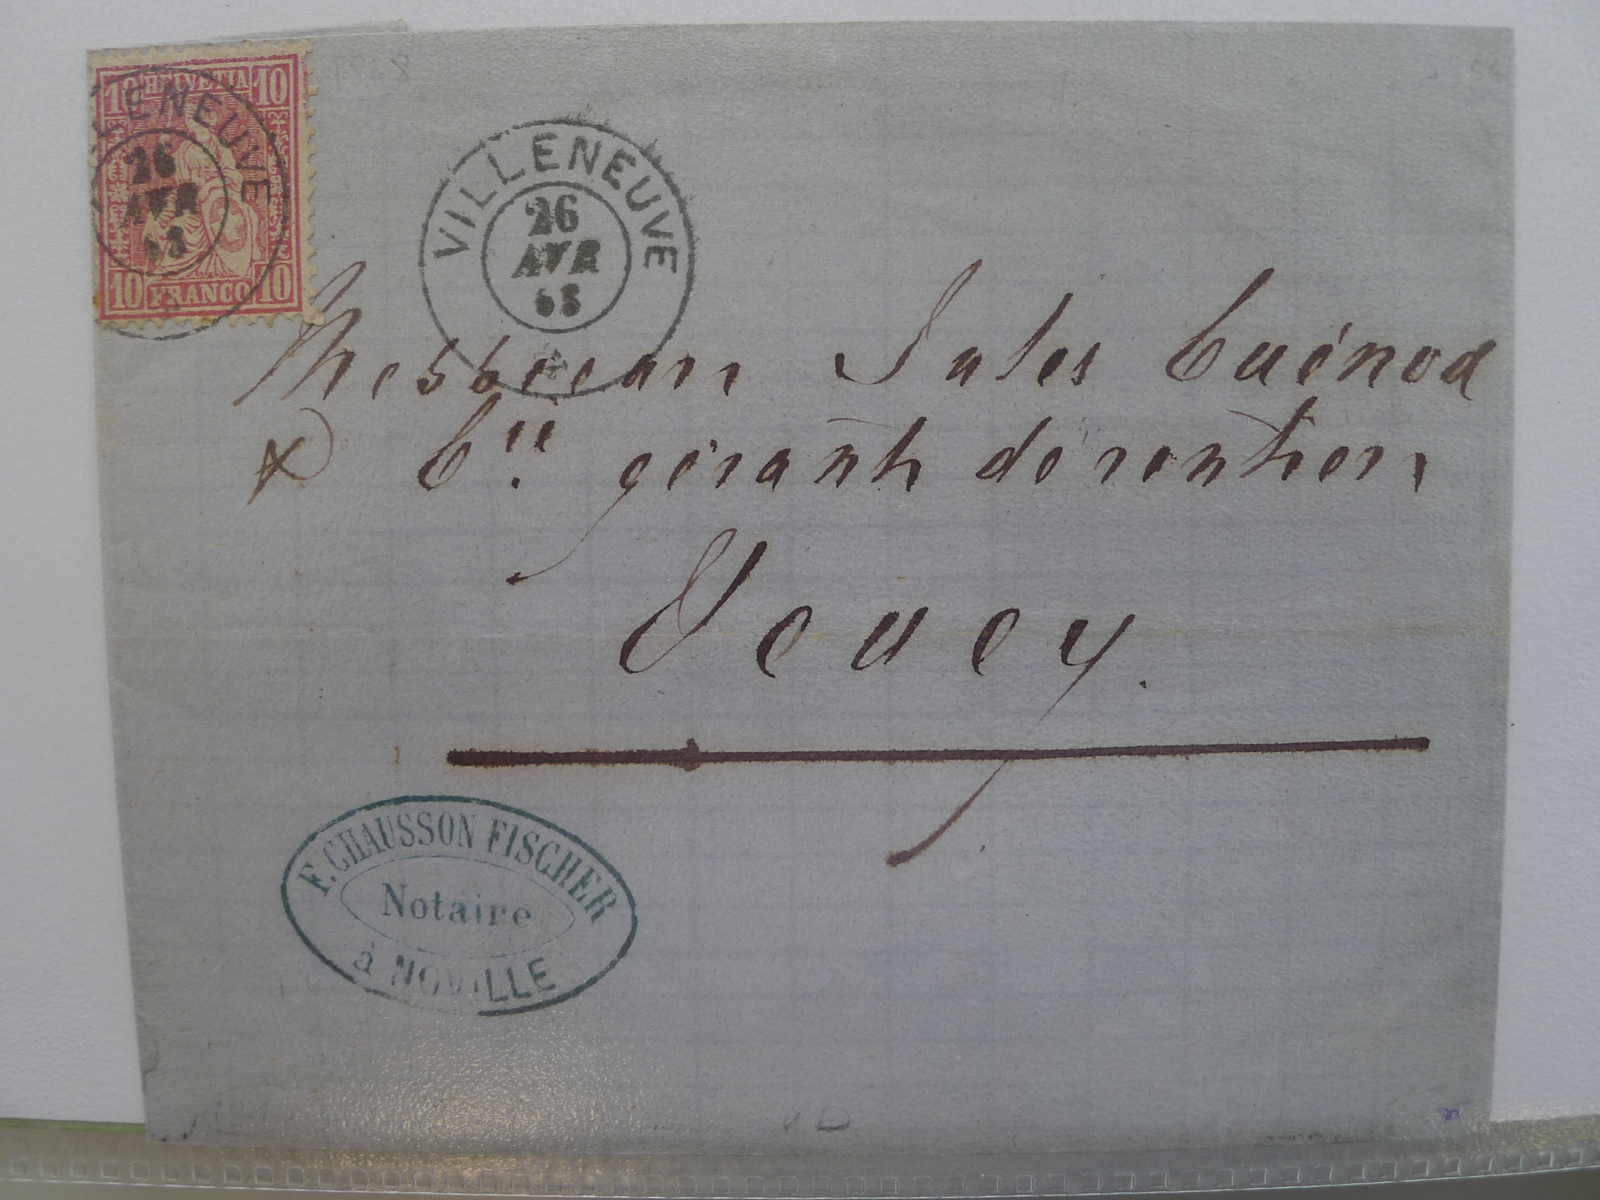 10 HELVETIA 10
10 FRANCO 10
VILLENEUVE
26
AVR
68
VILLENEUVE
26
AVR
68
Messieurs Jules Cuénod
& Cie gérants de rentiers
Vevey.
F. CHAUSSON FISCHER
Notaire
à NOVILLE
VD